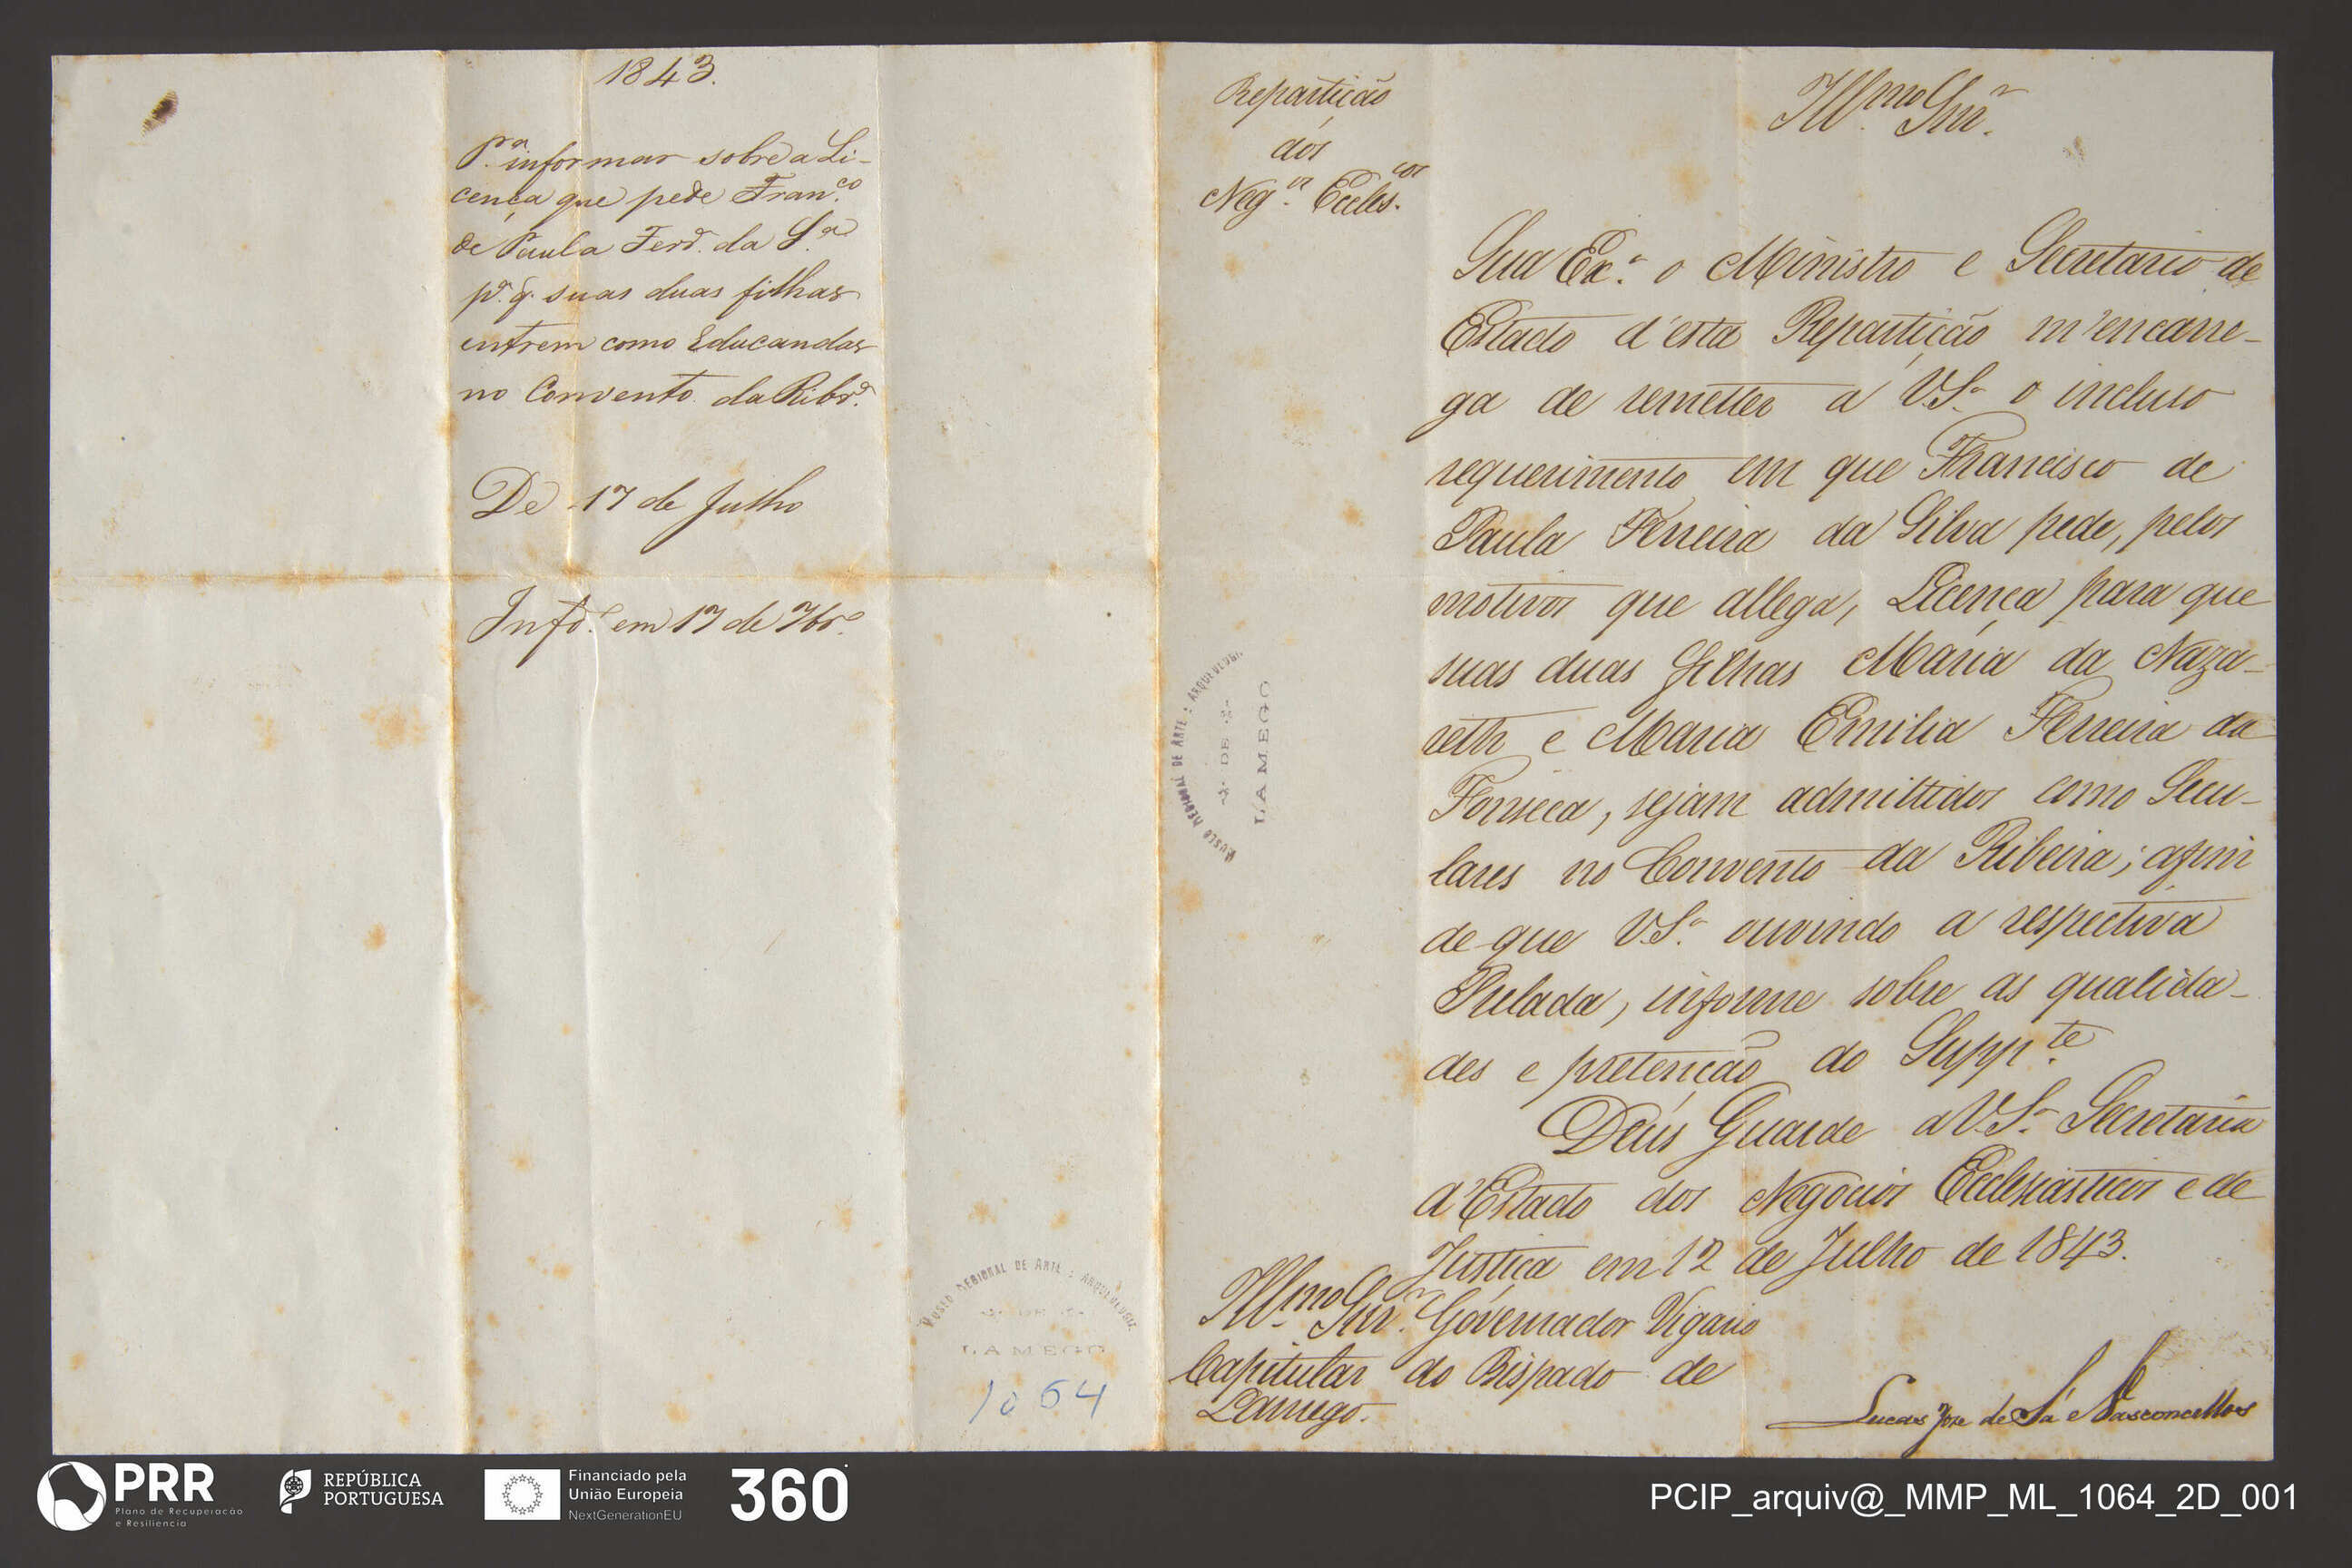 1843.
P.ra informar sobre a Li-
cença que pede Fran.co
de Paula Ferr.a da S.a
p.a q. suas duas filhas
entrem como Educandas
no Convento da Ribr.a
De 17 de Julho
Inf.o em 17 de 7br.o
MUSEU REGIONAL DE ARTE E ARQUEOLOGIA
DE
LAMEGO
1064
Repartição
dos
Neg.os Eccles.cos
Ill.mo Snr.
Sua Ex.a o Ministro e Secretario de
Estado d'esta Repartição m'encarre-
ga de remetter a V.S.a o incluso
requerimento em que Francisco de
Paula Ferreira da Silva pede, pelos
motivos que allega, Licença para que
suas duas filhas Maria da Naza-
reth e Maria Emilia Ferreira da
Fonseca, sejam admittidas como Secu-
lares no Convento da Ribeira; afim
de que V.S.a ouvindo a respectiva
Prelada, informe sobre as qualida-
des e pretenção do Supp.te
Deus Guarde a V.S.a Secretaria
d'Estado dos Negocios Ecclesiasticos e de
Justiça em 12 de Julho de 1843.
Ill.mo Snr. Governador Vigario
Capitular do Bispado de
Lamego.
Lucas Jose de Sá e Vasconcellos
MUSEU REGIONAL DE ARTE E ARQUEOLOGIA
DE
LAMEGO
PRR
Plano de Recuperação
e Resiliência
REPÚBLICA
PORTUGUESA
Financiado pela
União Europeia
NextGenerationEU
360
PCIP_arquiv@_MMP_ML_1064_2D_001